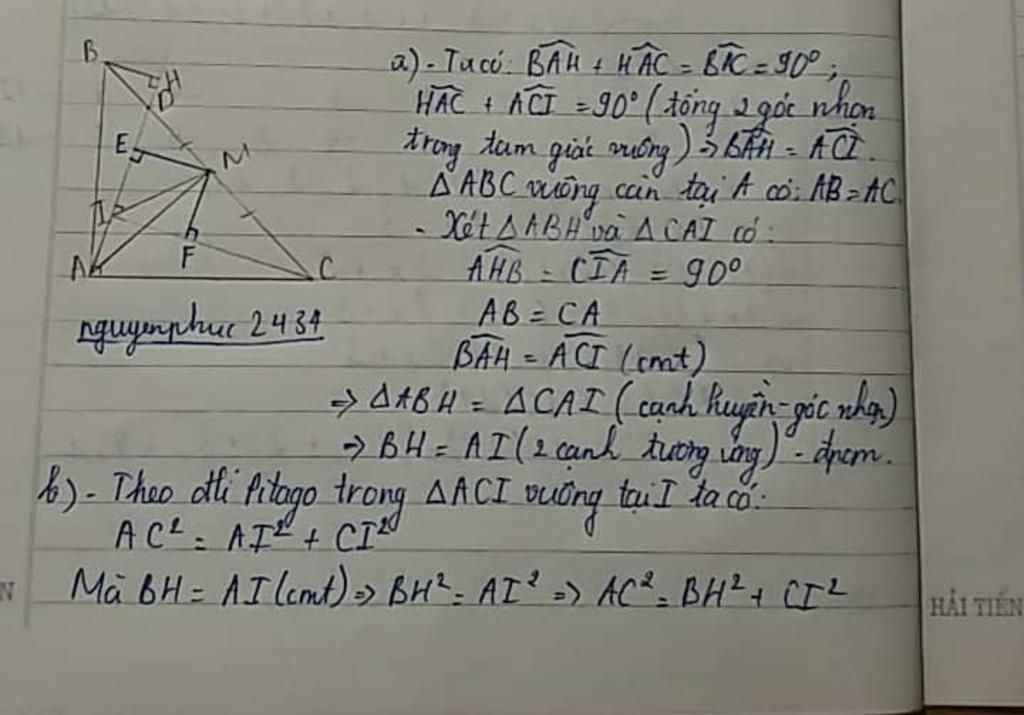 B
H
D
E
M
I
F
A
C
nguyenphuc 2434
a) - Ta có: BÂH + HÂC = BÂC = 90° ;
HÂC + AĈI = 90° (tổng 2 góc nhọn
trong tam giác vuông) => BÂH = AĈI.
Δ ABC vuông cân tại A có: AB = AC.
- Xét Δ ABH và Δ CAI có:
AĤB = CÎA = 90°
AB = CA
BÂH = AĈI (cmt)
=> Δ ABH = Δ CAI (cạnh huyền - góc nhọn)
=> BH = AI (2 cạnh tương ứng) - đpcm.
b) - Theo đlí Pitago trong Δ ACI vuông tại I ta có:
AC² = AI² + CI²
Mà BH = AI (cmt) => BH² = AI² => AC² = BH² + CI²
N
HẢI TIẾN